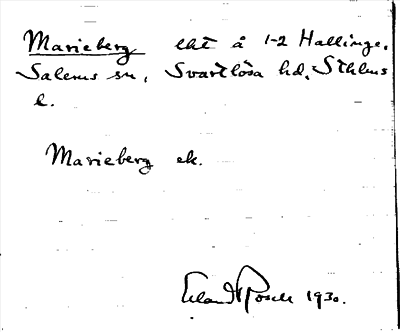 Marieberg lht å 1-2 Hallinge.
Salems sn, Svartlösa hd, Sthlms
l.
Marieberg ek.
Erland Rosell 1930.